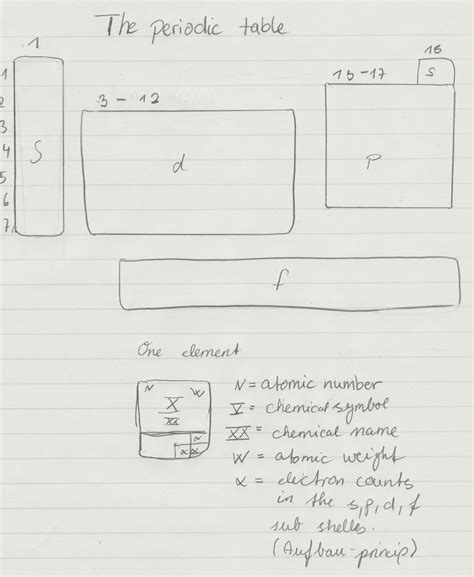 The periodic table
1
18
13-17
S
3 - 12
1
2
3
4
5
6
7
S
d
p
f
One element
N W
X
XX
α
α α
N = atomic number
X = chemical symbol
XX = chemical name
W = atomic weight
α = electron counts
in the s, p, d, f
sub shells.
(Aufbau-princip)